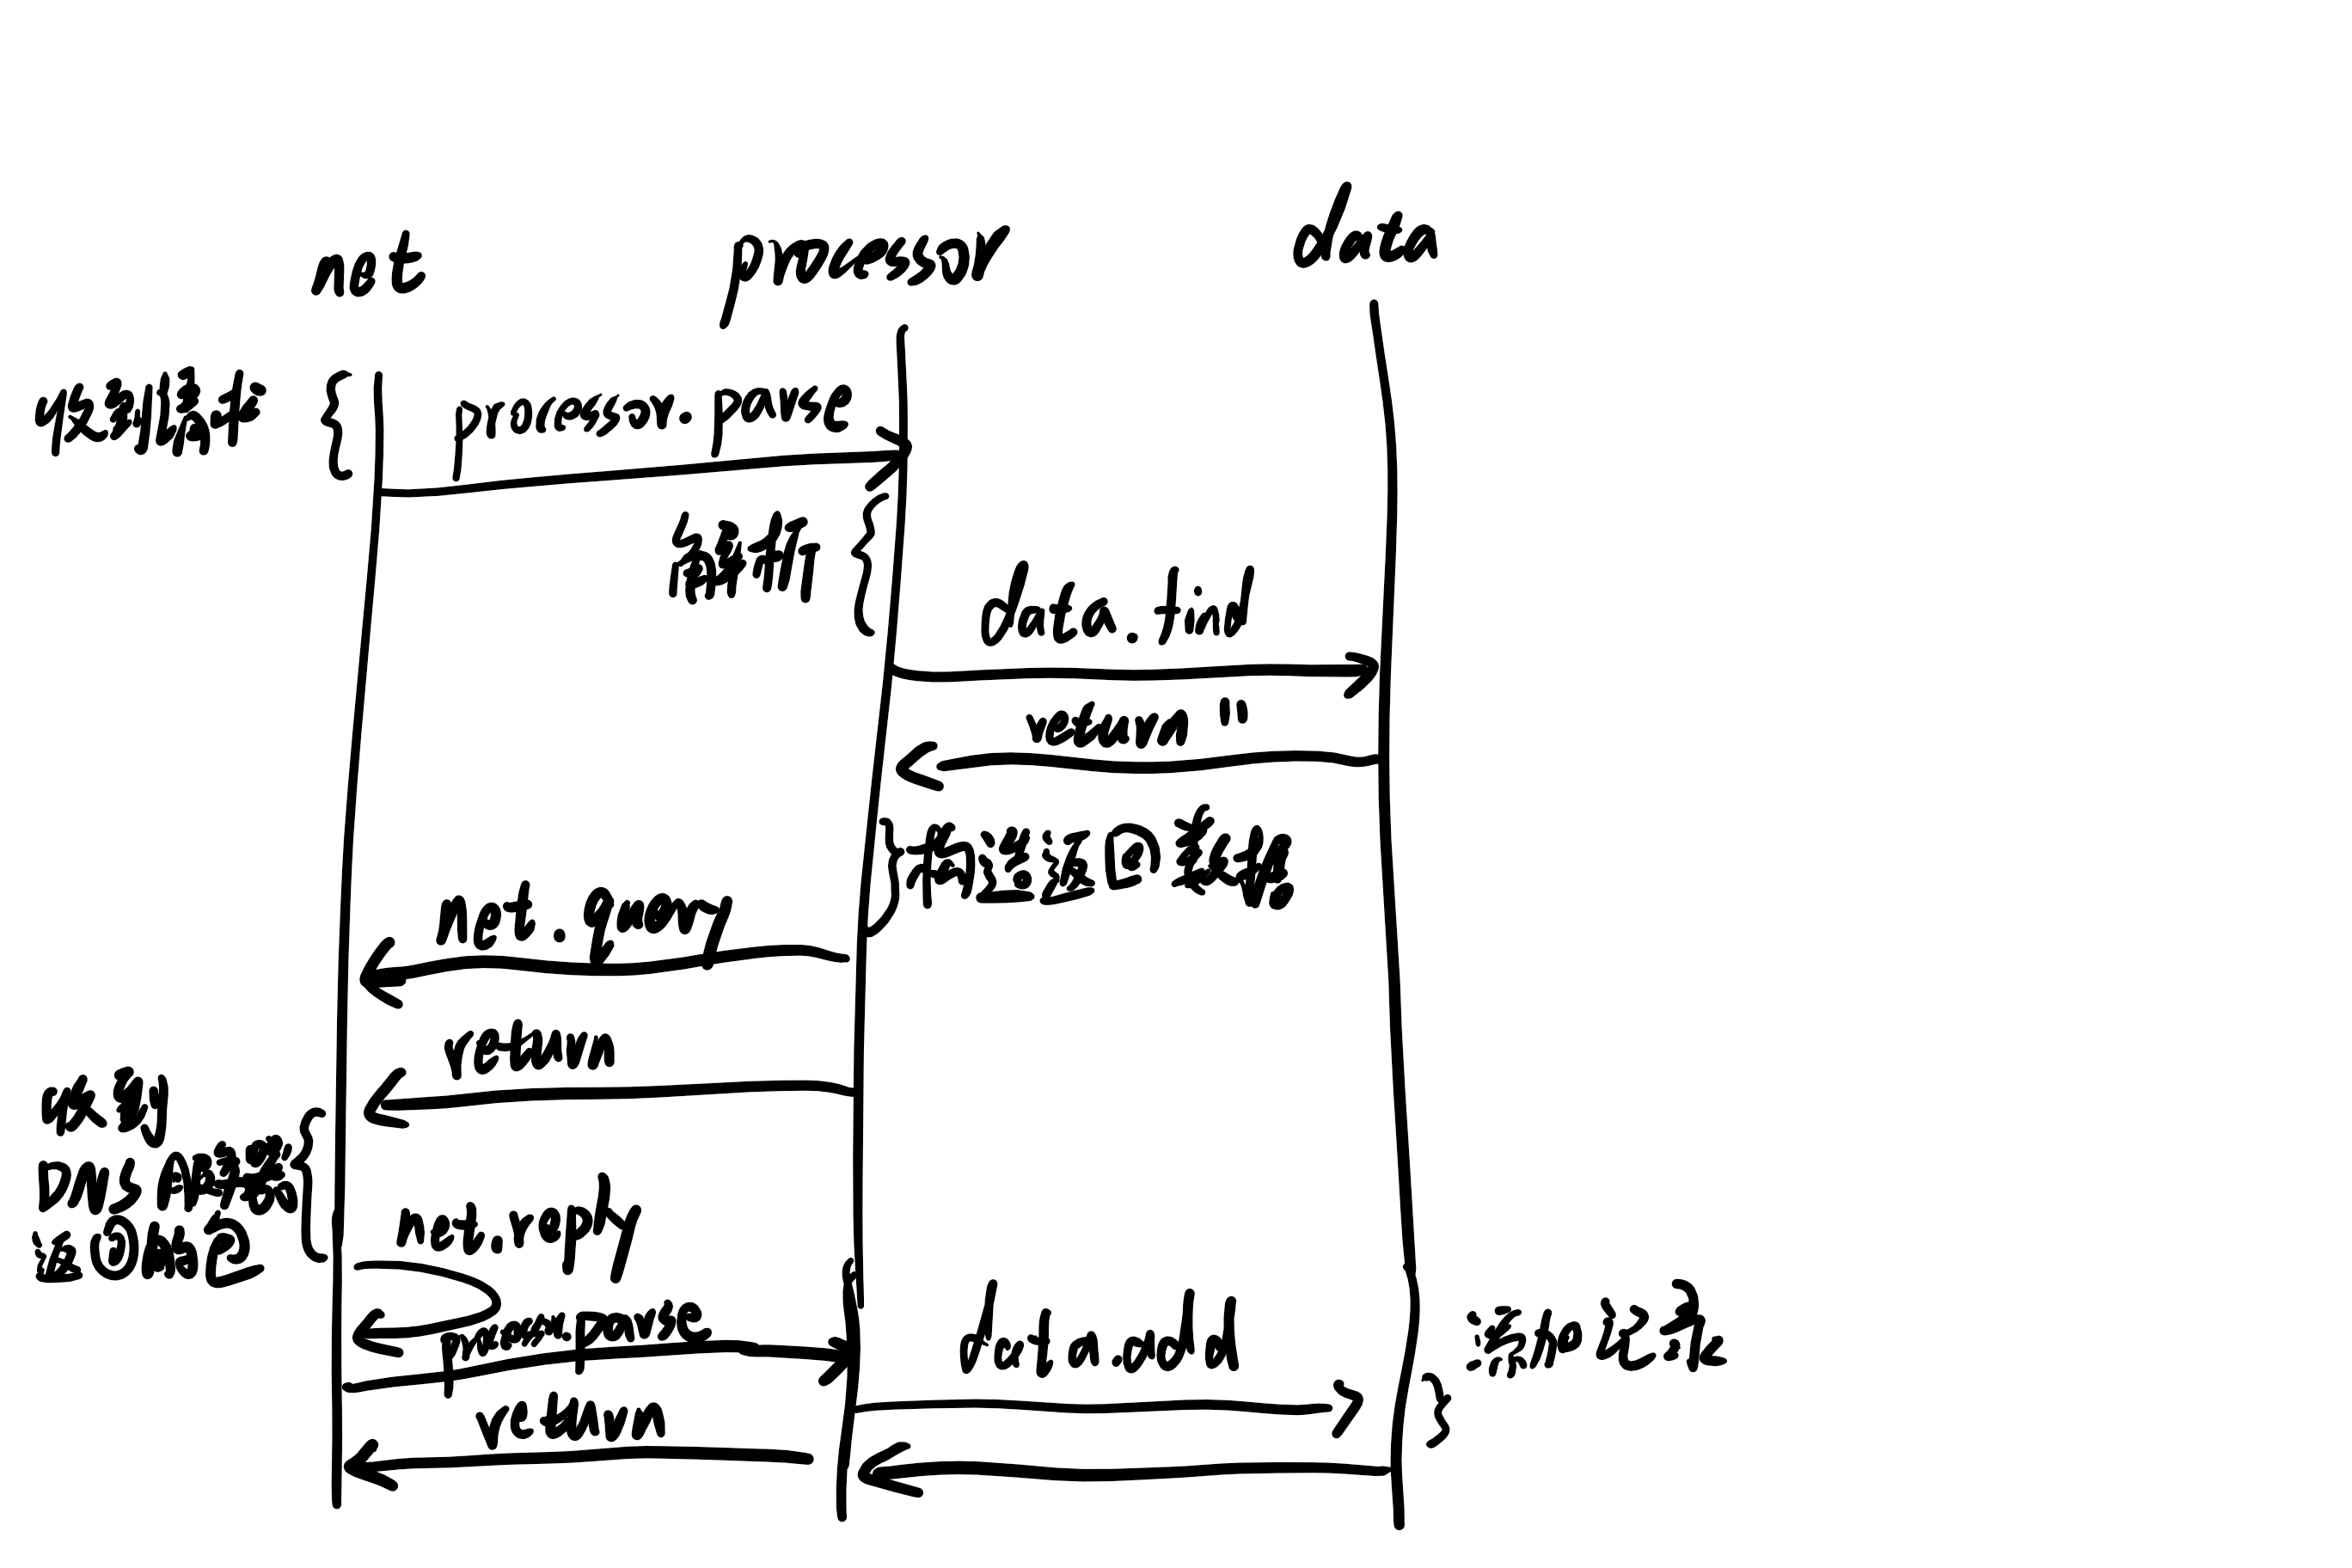 net
processor
data
收到请求
processor.parse
解析
data.find
return ''
构造返回数据
net.query
return
收到
DNS服务器
返回响应
net.reply
process.parse
return
data.add
添加记录